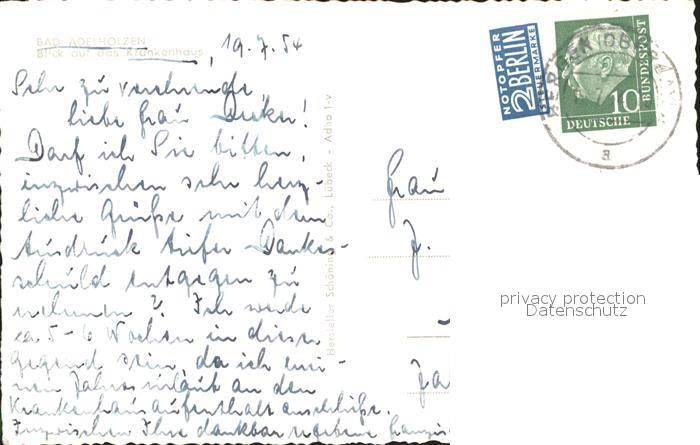 BAD ADELHOLZEN
Blick auf das Krankenhaus
19.7.54
Sehr zu verehrende,
liebe Frau
Darf ich Sie bitten,
inzwischen sehr herz-
liche Grüße mit dem
Ausdruck tiefer Dankes-
schuld entgegen zu
nehmen? Ich werde
ca 5-6 Wochen in dieser
Gegend sein, da ich mei-
nen Jahresurlaub an den
Krankenhausaufenthalt anschließe.
Inzwischen Ihre dankbar ergebene
Hersteller Schöning & Co., Lübeck - Adho I-v
NOTOPFER
2 BERLIN
STEUERMARKE
DEUTSCHE
BUNDESPOST
10
a
Frau
privacy protection
Datenschutz